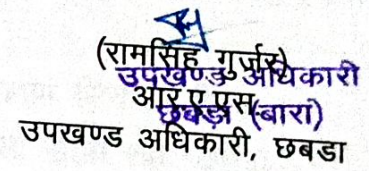 (रामसिंह गुर्जर)
उपखण्ड अधिकारी
आर.ए.एस.
छबड़ा (बारां)
उपखण्ड अधिकारी, छबडा